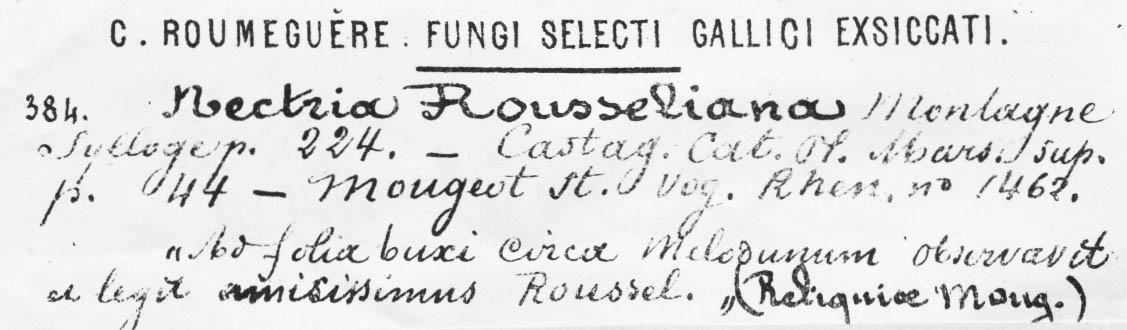 C. ROUMEGUÈRE. FUNGI SELECTI GALLICI EXSICCATI.
384. Nectria Rousseliana Montagne
Sylloge p. 224. — Castag. Cat. Pl. Mars. sup.
p. 44 — Mougeot St. Vog. Rhen. no 1462.
"Ad folia buxi circa Melodunum observavit
et legit amisissimus Roussel. „(Reliquiæ Moug.)